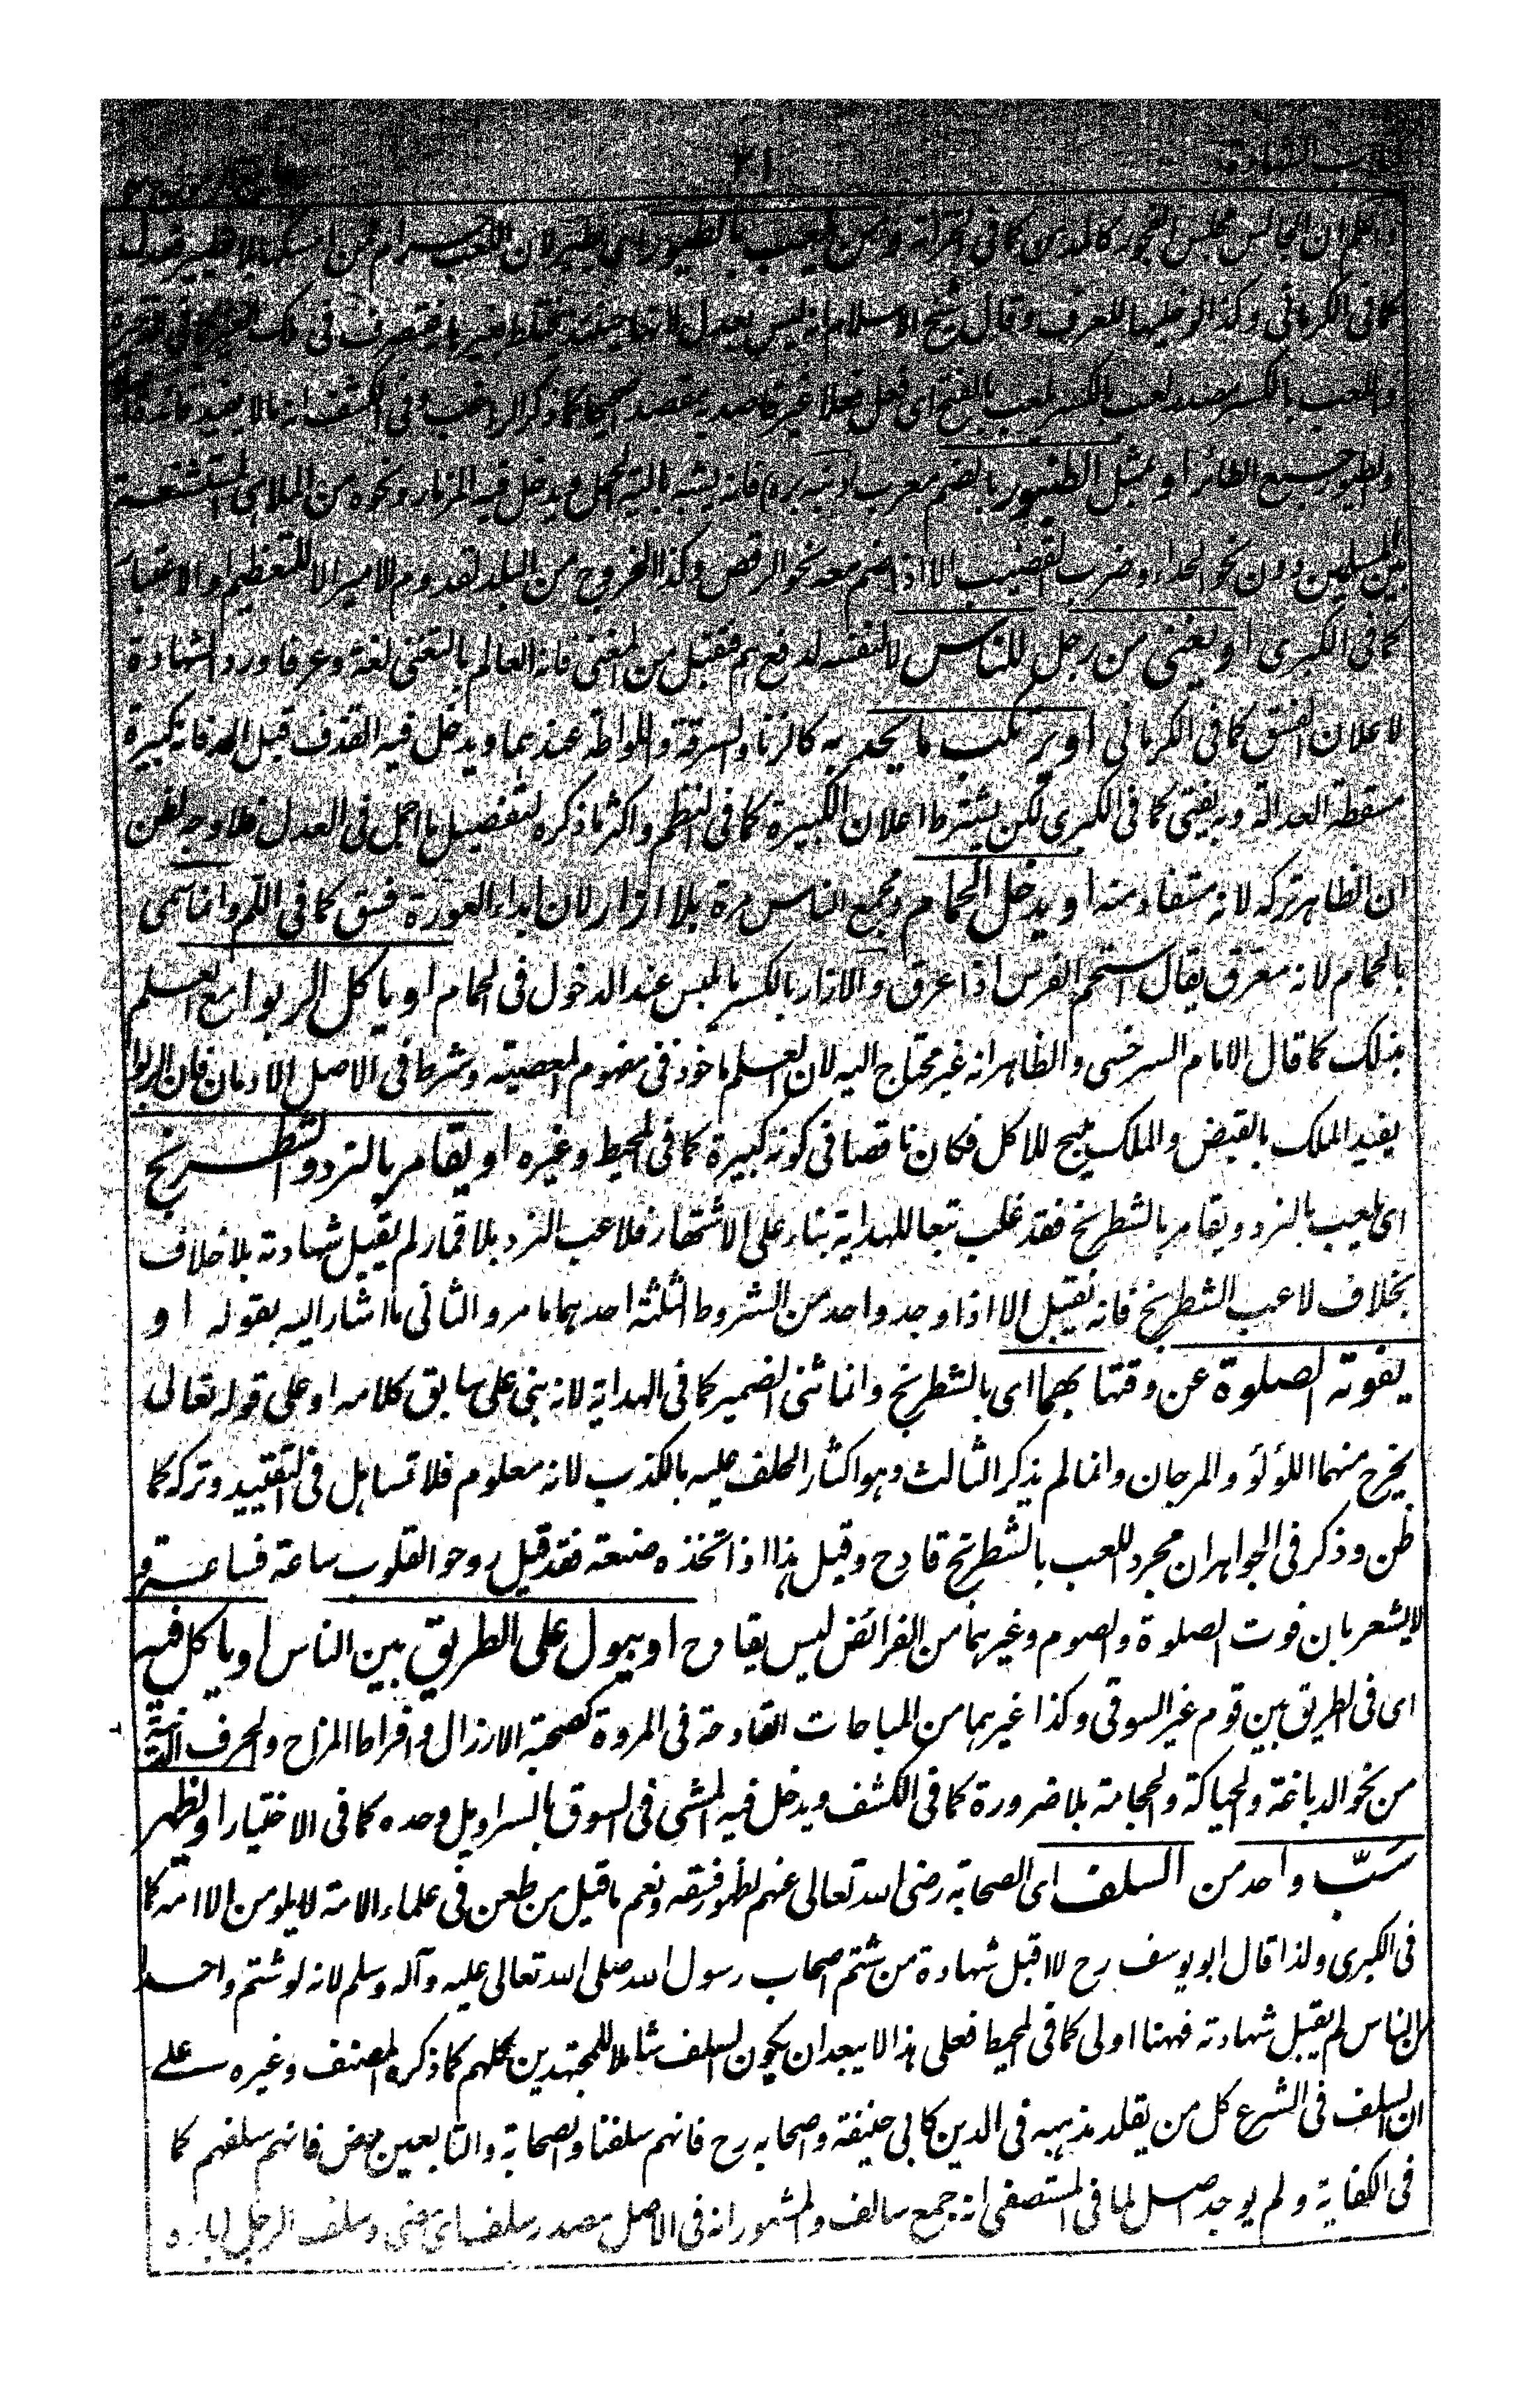 كتاب الشهادة
واعلم ان الجالس مجلس الفجور كالمدمن كما في الخزانة ومن يلعب بالطيور اى يطير لان اللعب حرام فمن امسكها بلا تطيير فعدل
كما في الكرماني وكذا لو خليها للعرف وقال شيخ الاسلام انه ليس بعدل لانها حينئذ تختلط بغيرها فتفرخ في ملك الغير كما في
واللعب بالكسر مصدر لعب بالكسر يلعب بالفتح اى فعل فعلا غير قاصد به مقصدا صحيحا كما ذكره الراغب وفي الكشف انه ما لا يفيد فائدة
والطيور جمع الطائر او مثل الطنبور بالضم معرب (دنبه بره) فانه يشبه بالية الحمل ويدخل فيه المزمار ونحوه من الملاهي المستشنعة
بين المسلمين دون نحو الحداء وضرب القضيب الا اذا ضم معه نحو الرقص وكذا الخروج من البلد لقدوم الامير الا للتعظيم او الاعتبار
كما في الكبرى او يغنى من رجل للناس لا لنفسه لدفع هم فتقبل من المغنى فانه العالم بالتغنى لغة وعرفا ورد الشهادة
لاعلان الفسق كما في الكرماني او يرتكب ما يحد به كالزنا والسرقة واللواطة عندهما ويدخل فيه القذف قبل الحد فانه كبيرة
مسقطة العدالة وبه يفتى كما في الكبرى لكن يشترط اعلان الكبيرة كما في النظم واكثر ما ذكره لتفصيل ما اجمل في العدل فلا وجه لظن
ان الظاهر تركه لانه مستفاد منه او يدخل الحمام ومجمع الناس مرة بلا ازار لان ابداء العورة فسق كما في اللم وانما سمى
بالحمام لانه معرق يقال استحم الفرس اذا عرق والازار بالكسر ما يلبس عند الدخول في الحمام او ياكل الربوا مع العلم
بذلك كما قال الامام السرخسى والظاهر انه غير محتاج اليه لان العلم ماخوذ في مفهوم المعصية وشرط في الاصل الادمان فان الربوا
يفيد الملك بالقبض والملك يبيح للاكل فكان ناقصا في كونه كبيرة كما في المحيط وغيره او يقامر بالنرد والشطرنج
اى يلعب بالنرد ويقامر بالشطرنج فقد غلب تبعا للهداية بناء على الاشتهار فلاعب النرد بلا قمار لم يقبل شهادته بلا خلاف
بخلاف لاعب الشطرنج فانه تقبل الا اذا وجد واحد من الشروط الثلثة احدهما ما مر والثاني ما اشار اليه بقوله او
يفوته الصلوة عن وقتها بهما اى بالشطرنج وانما ثنى الضمير كما في الهداية لانه بنى على سابق كلامه او على قوله تعالى
يخرج منهما اللؤلؤ والمرجان وانما لم يذكر الثالث وهو اكثار الحلف عليه بالكذب لانه معلوم فلا تساهل في التقييد وتركه كما
ظن وذكر في الجواهر ان مجرد اللعب بالشطرنج قادح وقيل هذا اذا اتخذه صنعة فقد قيل روحوا القلوب ساعة فساعة و
لا يشعر بان فوت الصلوة والصوم وغيرهما من الفرائض ليس بقادح او يبول على الطريق بين الناس او ياكل فيه
اى في الطريق بين قوم غير السوقى وكذا غيرهما من المباحات القادحة في المروة كصحبة الارزال وافراط المزاح والحرف الدنية
من نحو الدباغة والحياكة والحجامة بلا ضرورة كما في الكشف ويدخل فيه المشى في السوق بالسراويل وحده كما في الاختيار او يظهر
سبّ واحد من السلف اى الصحابة رضى الله تعالى عنهم لظهور فسقه ونعم ما قيل من طعن في علماء الامة لا يلومن الا امه كما
في الكبرى ولذا قال ابو يوسف رح لا اقبل شهادة من شتم اصحاب رسول الله صلى الله تعالى عليه وآله وسلم لانه لو شتم واحدا
من الناس لم يقبل شهادته فههنا اولى كما في المحيط فعلى هذا لا يبعد ان يكون السلف شاملا للمجتهدين كلهم كما ذكره المصنف وغيره على
ان السلف في الشرع كل من يقلد مذهبه في الدين كابى حنيفة واصحابه رح فانهم سلفنا والصحابة والتابعين رض فانهم سلفهم كما
في الكفاية ولم يوجد اصل لما في المستصفى انه جمع سالف والمشهور انه في الاصل مصدر سلف اى مضى وسلف الرجل اباؤه